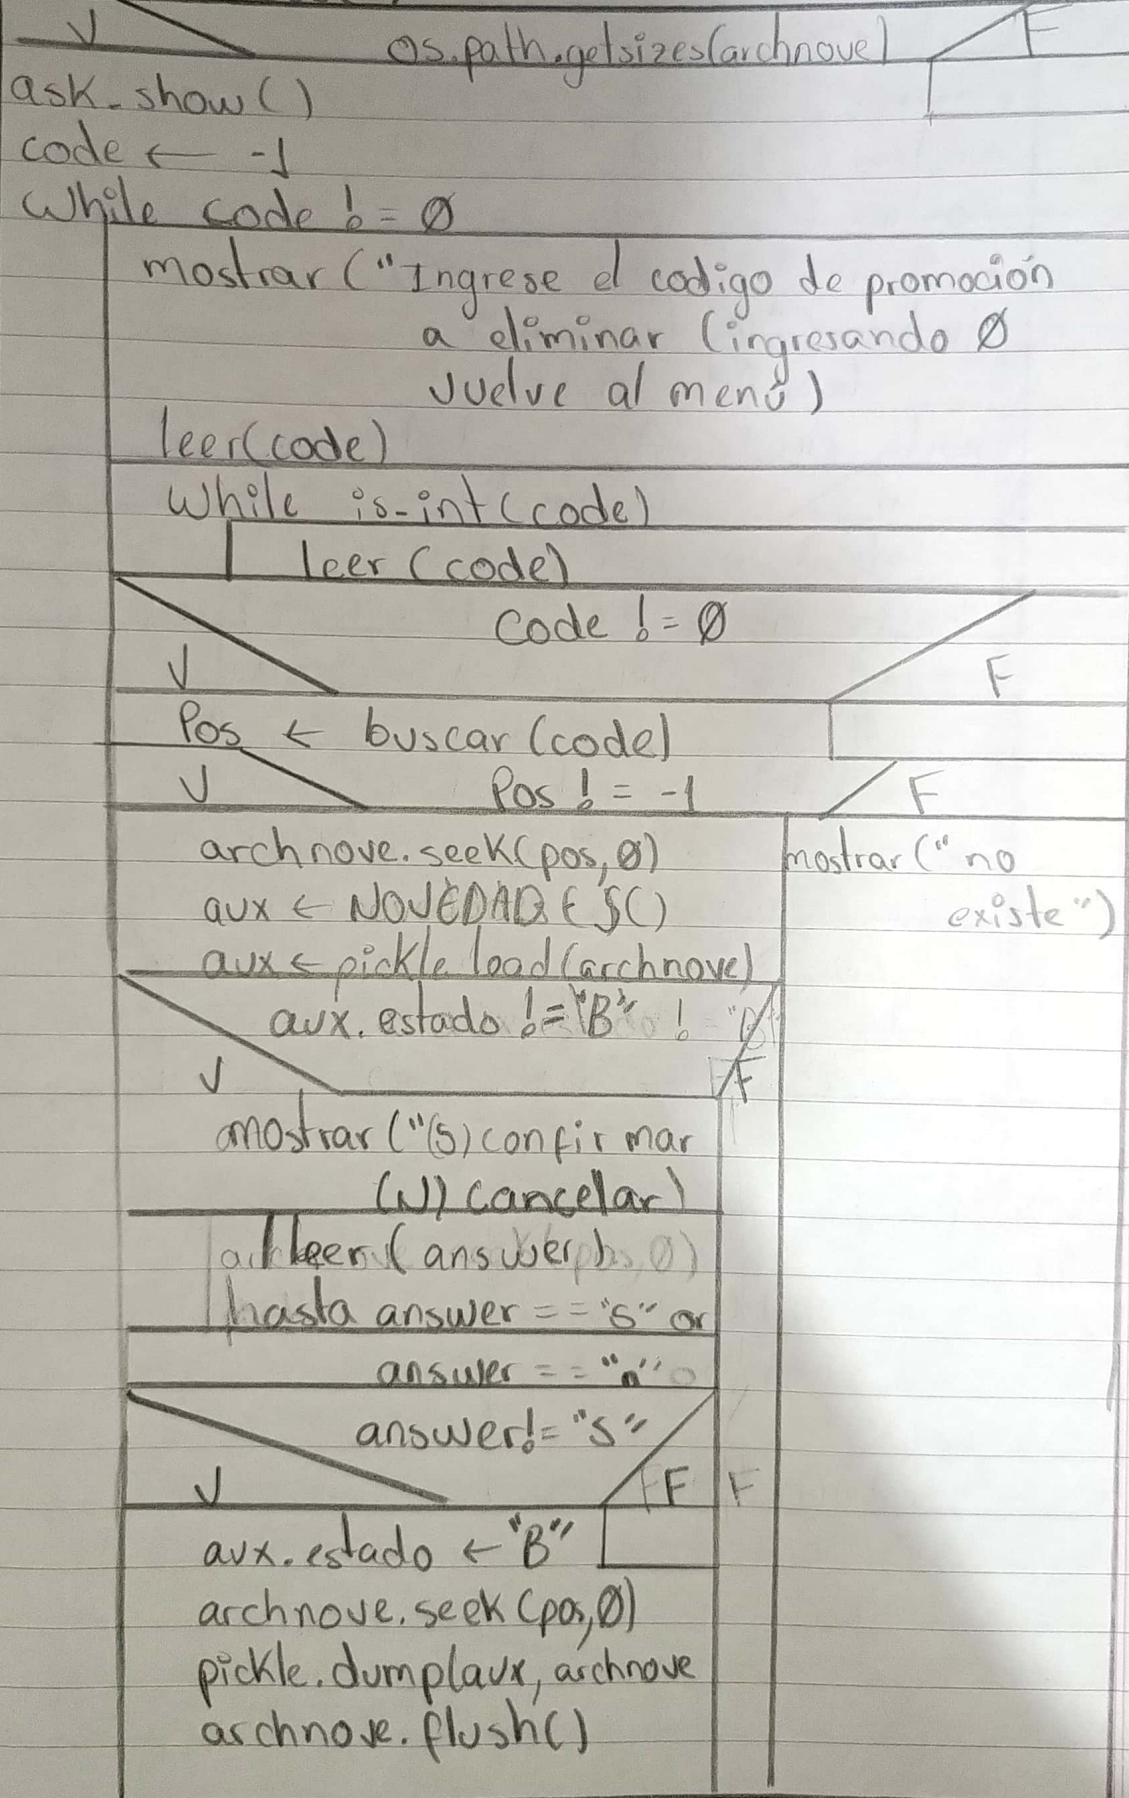 V os.path.getsizes(archnove) F
ask_show()
code ← -1
While code != 0
mostrar ("Ingrese el codigo de promoción
a eliminar (ingresando 0
vuelve al menú)
leer(code)
While is-int(code)
leer (code)
Code != 0
V F
Pos ← buscar (code)
V Pos != -1 F
archnove.seek(pos, 0) mostrar ("no
aux ← NOVEDADES() existe")
aux ← pickle load (archnove)
aux. estado != "B"
V F
mostrar ("(S) confirmar
(N) cancelar)
leer ( answer )
hasta answer == "S" or
answer == "n"
answer != "S"
V F F
aux. estado ← "B"
archnove. seek (pos, 0)
pickle. dump(aux, archnove
archnove. flush()